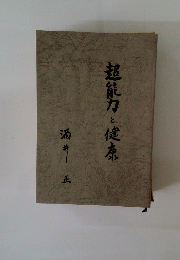 超能力と健康
酒井正